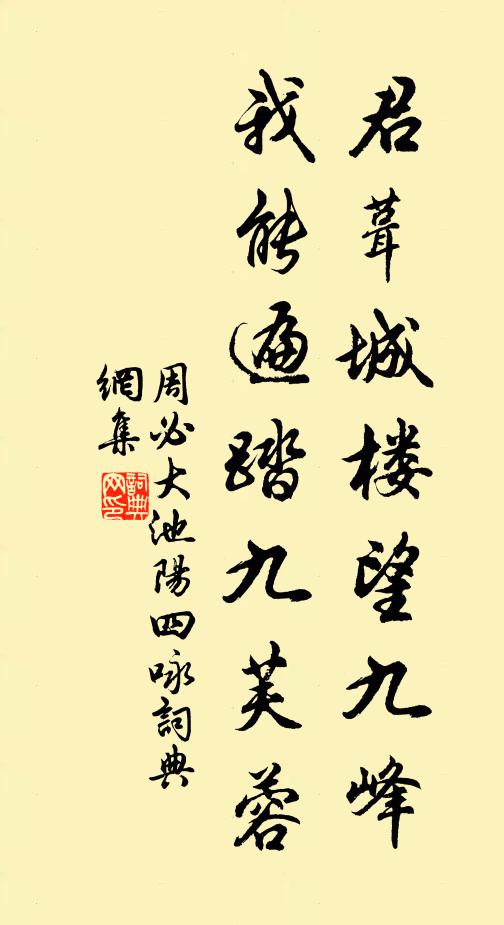 君葺城楼望九峰
我能遍踏九芙蓉
周必大池陽四咏詞典
網集
詞典网印